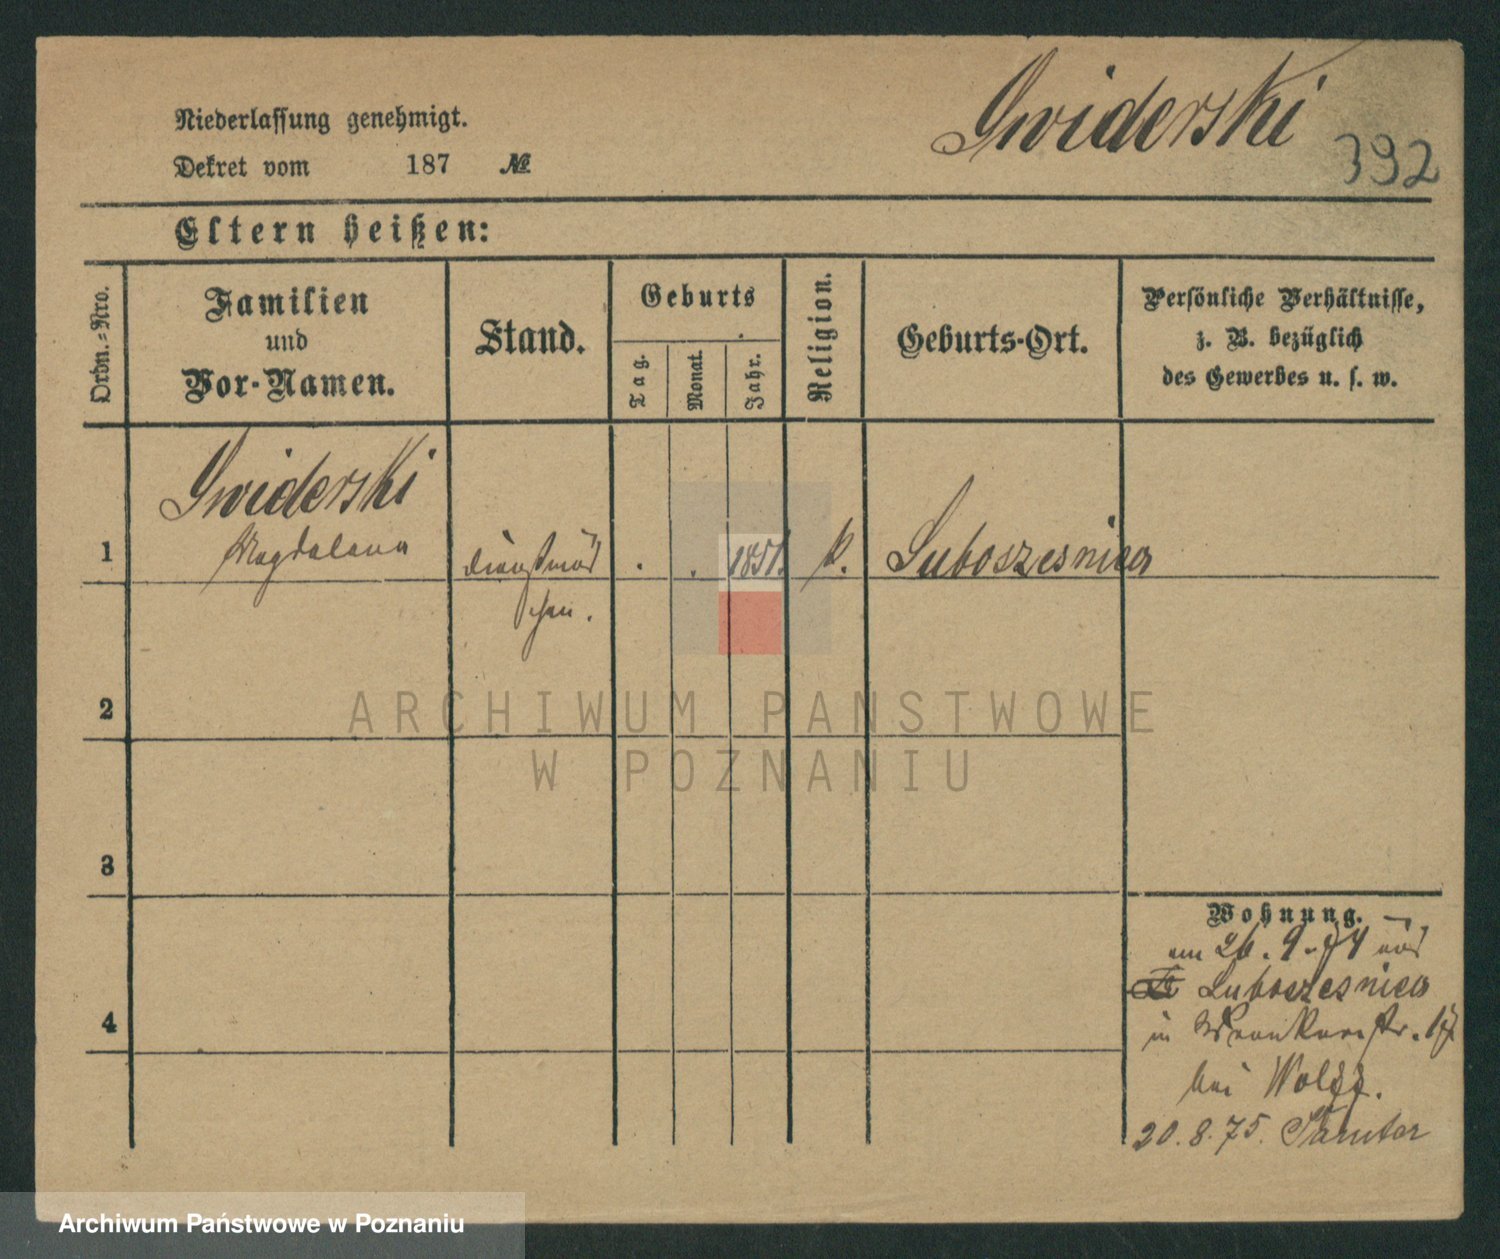 Swiderski
392
Niederlassung genehmigt.
Dekret vom 187 №
Eltern heißen:
Ordn.-Nro.
Familien
und
Vor-Namen.
Stand.
Geburts
Tag.
Monat.
Jahr.
Religion.
Geburts-Ort.
Persönliche Verhältnisse,
z. B. bezüglich
des Gewerbes u. s. w.
1
Swiderski
Magdalena
Dienstmäd
chen.
. . 1851. k. Luboszesnica
2
3
4
Wohnung.
am 26. 9. 74 aus
Luboszesnica
in Wronkerstr. 17
bei Wolff.
20. 8. 75. Samter
ARCHIWUM PAŃSTWOWE
W POZNANIU
Archiwum Państwowe w Poznaniu